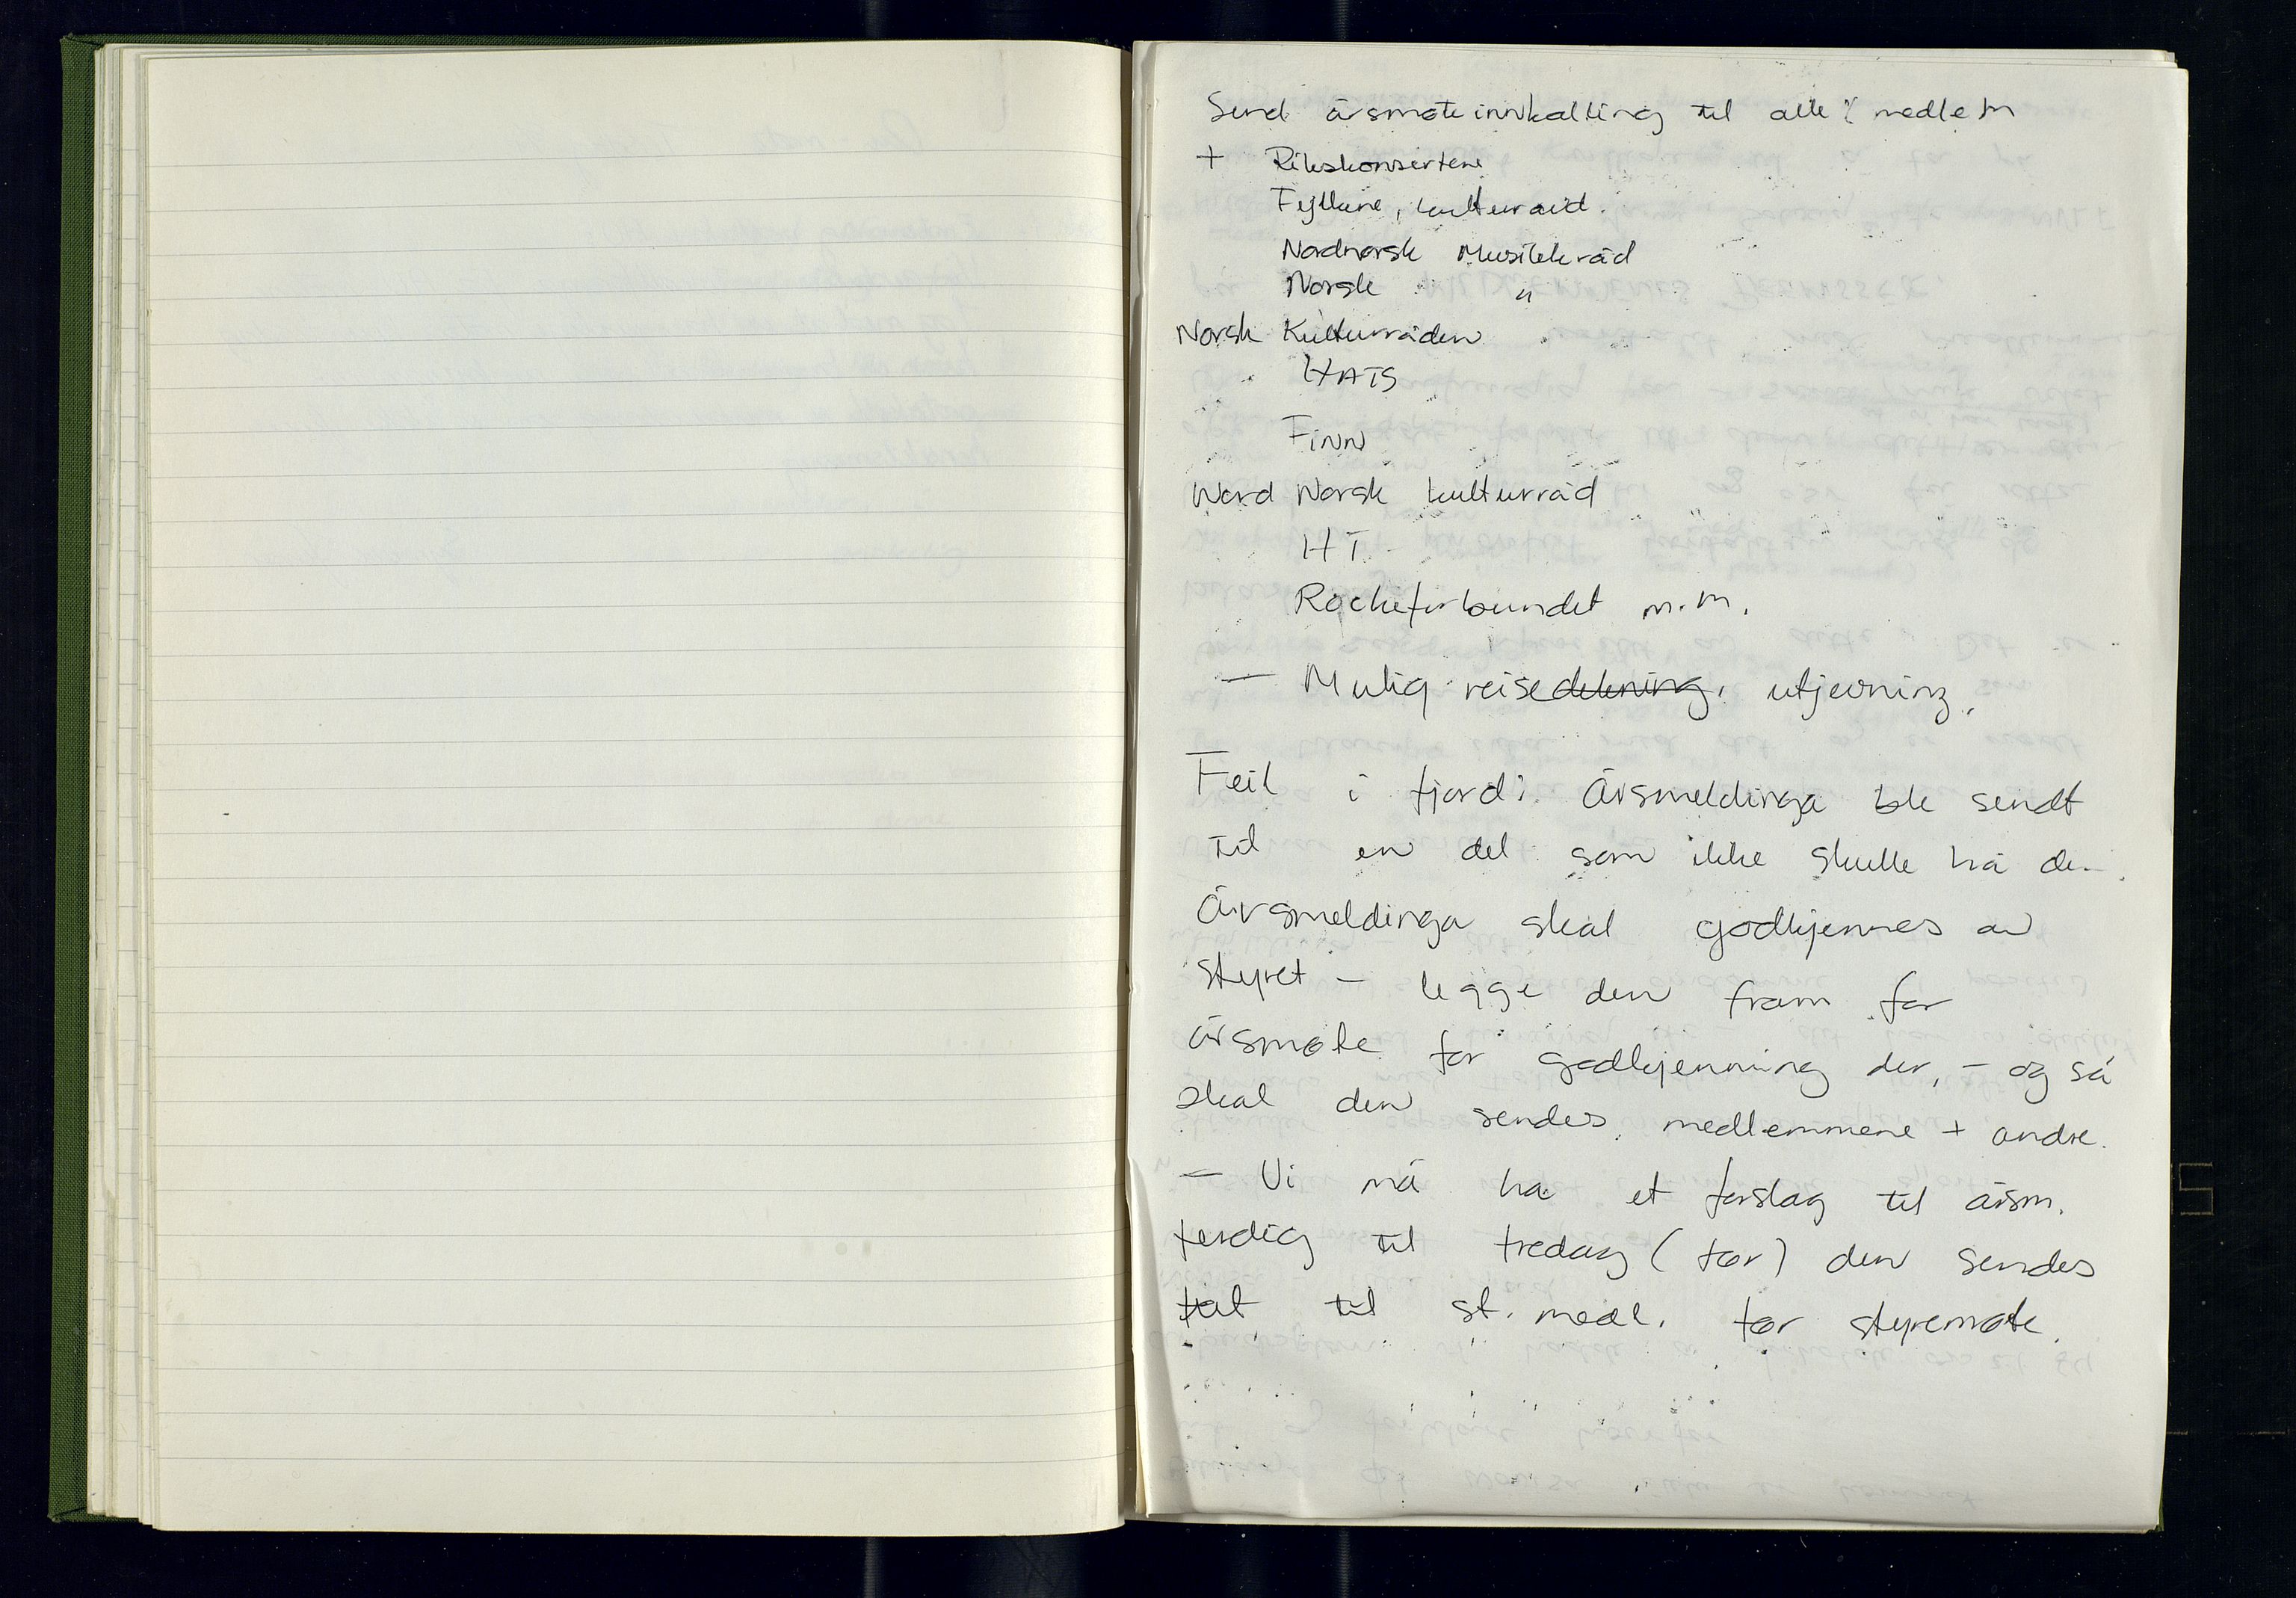 Send årsmøteinnkalling til alle medlem
+ Rikskonsertene
Fylkene, kulturavd.
Nordnorsk Musikkråd
Norsk "
Norsk Kulturråden
HATS
Finn
Nord Norsk kulturråd
HT
Rockeforbundet m.m.
— Mulig reisedekning, utjevning,
Feil i fjord: Årsmeldinga ble sendt
til en del som ikke skulle ha den.
Årsmeldinga skal godkjennes av
styret – legge den fram for
årsmøte for godkjenning der, – og så
skal den sendes, medlemmene + andre.
— Vi må ha et forslag til årsm.
ferdig til fredag (før) den sendes
ut til st. medl. før styremøte.